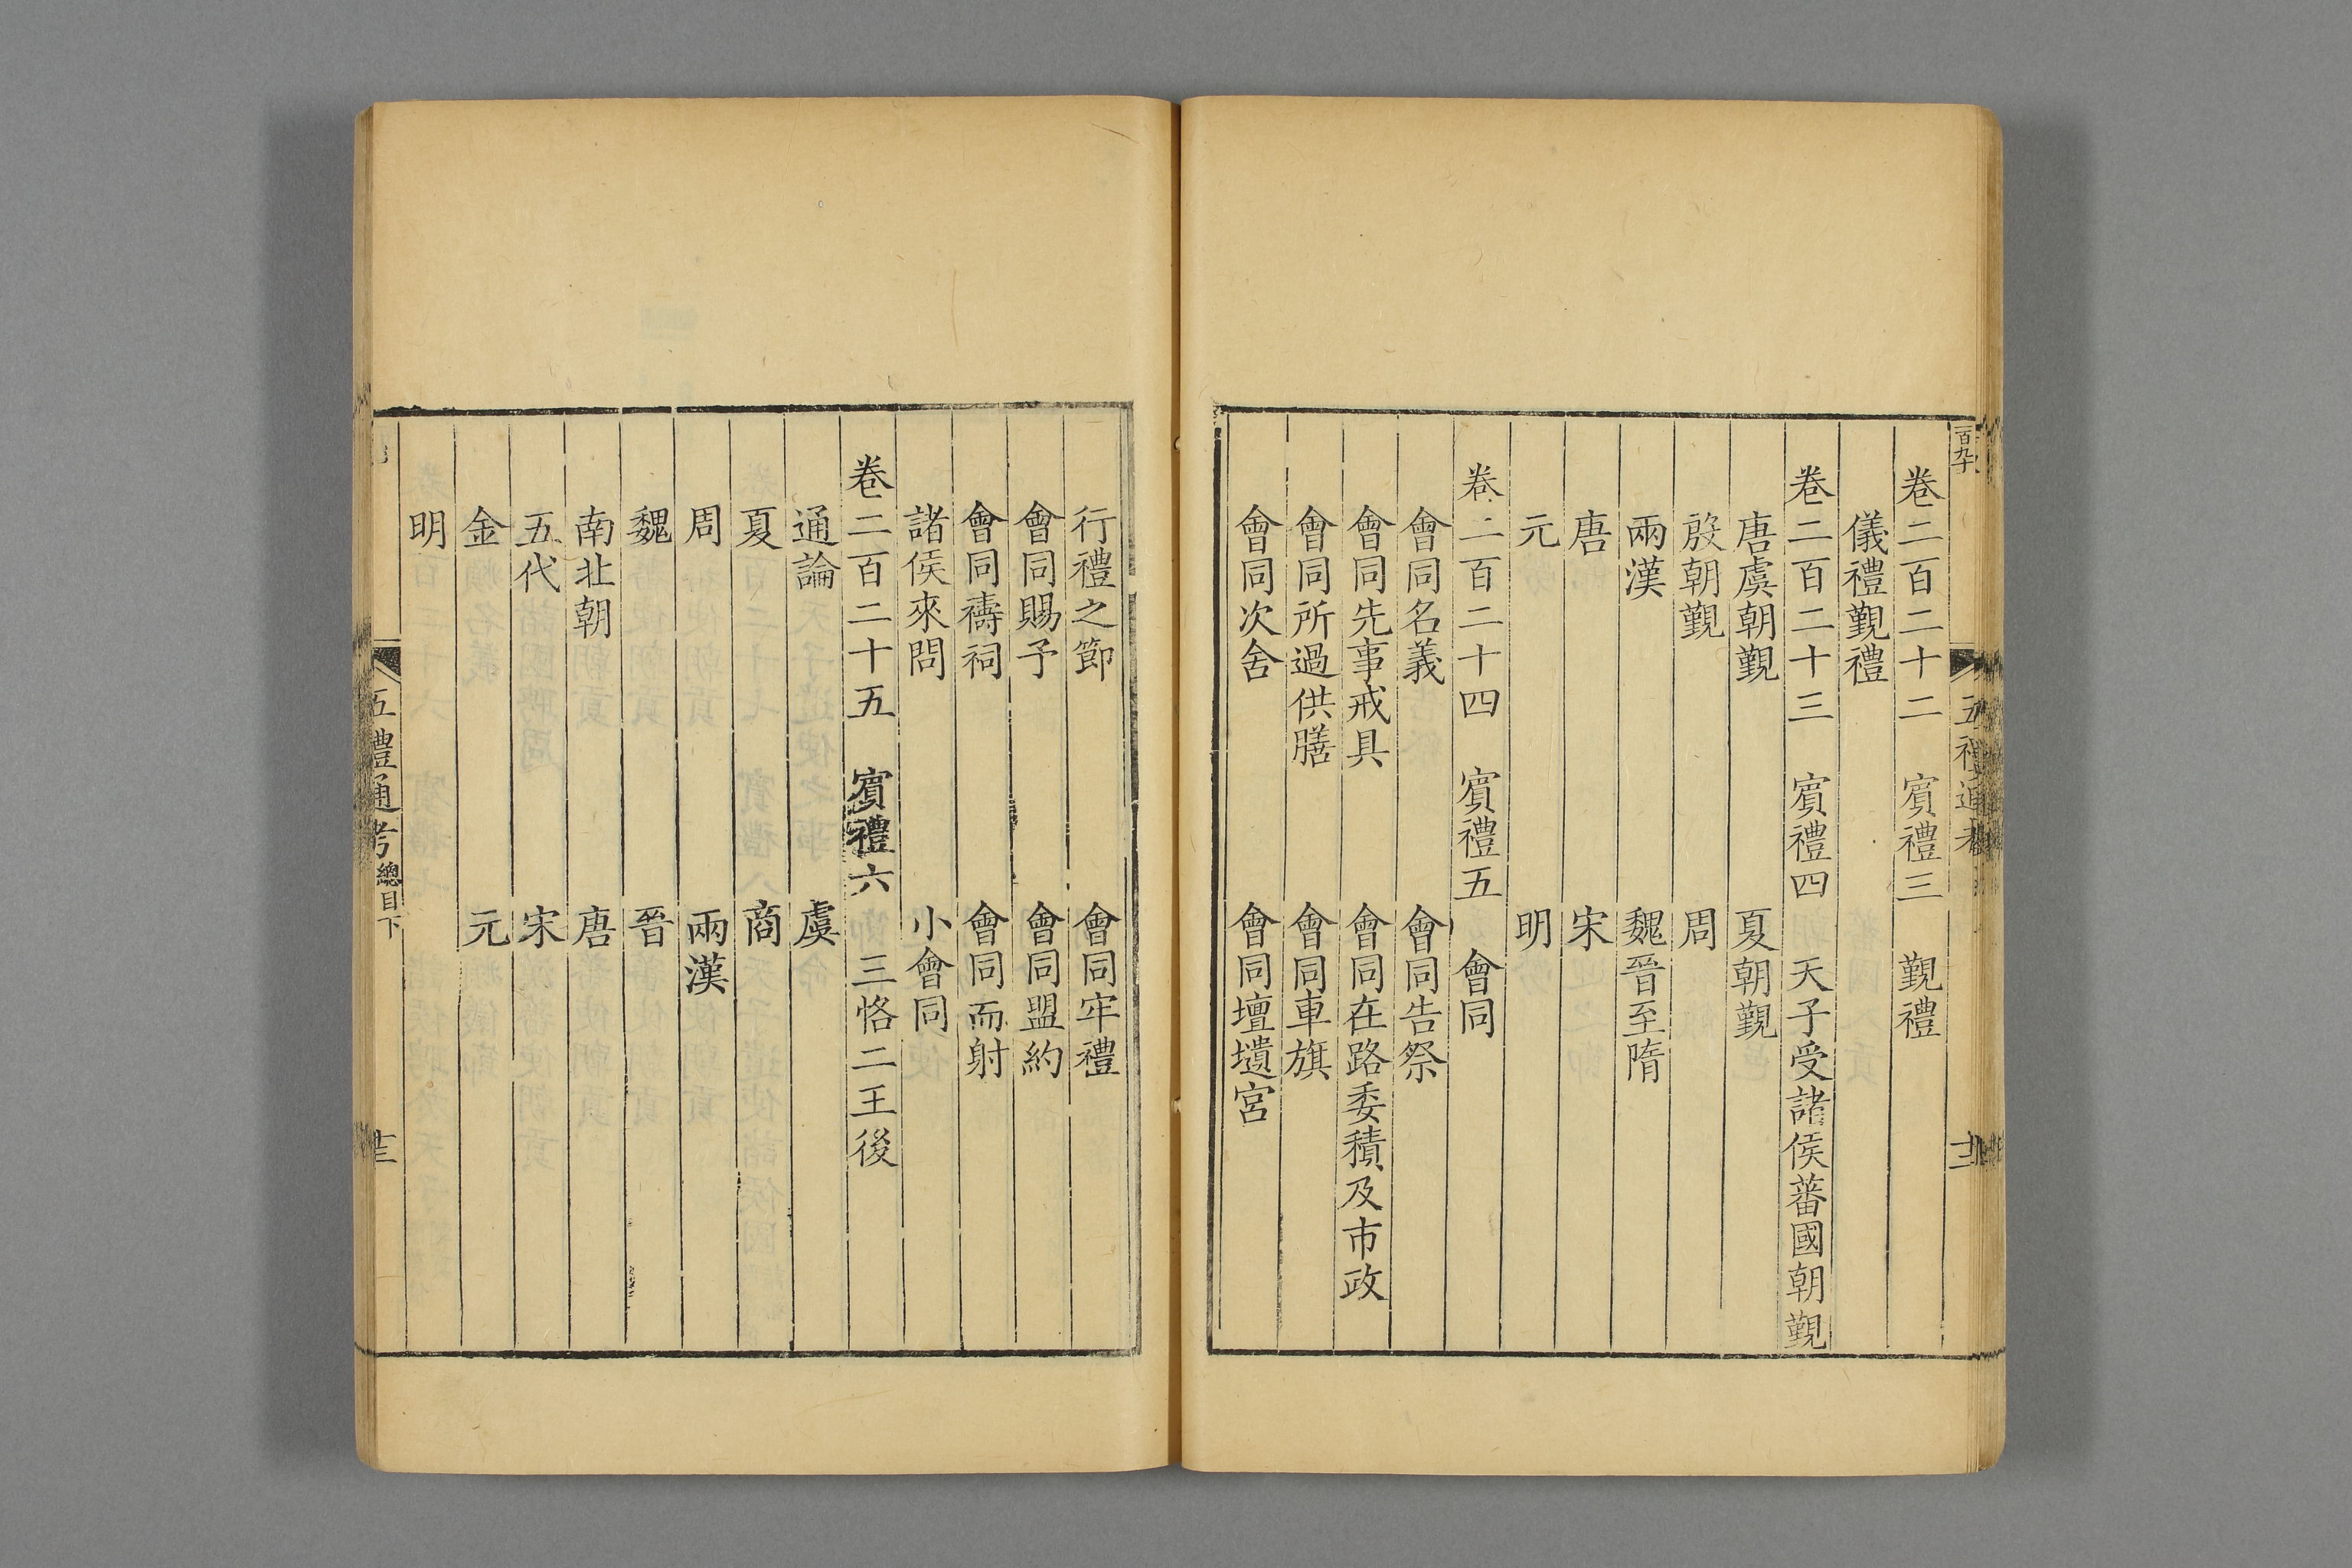 卷二百二十二　賓禮三　覲禮
儀禮覲禮
卷二百二十三　賓禮四　天子受諸侯蕃國朝覲
唐虞朝覲　夏朝覲
殷朝覲　周
兩漢　魏晉至隋
唐　宋
元　明
卷二百二十四　賓禮五　會同
會同名義　會同告祭
會同先事戒具　會同在路委積及市政
會同所過供膳　會同車旗
會同次舍　會同壇壝宮
行禮之節　會同牢禮
會同賜予　會同盟約
會同禱祠　會同而射
諸侯來問　小會同
卷二百二十五　賓禮六　三恪二王後
通論　虞
夏　商
周　兩漢
魏　晉
南北朝　唐
五代　宋
金　元
明
五禮通考總目下